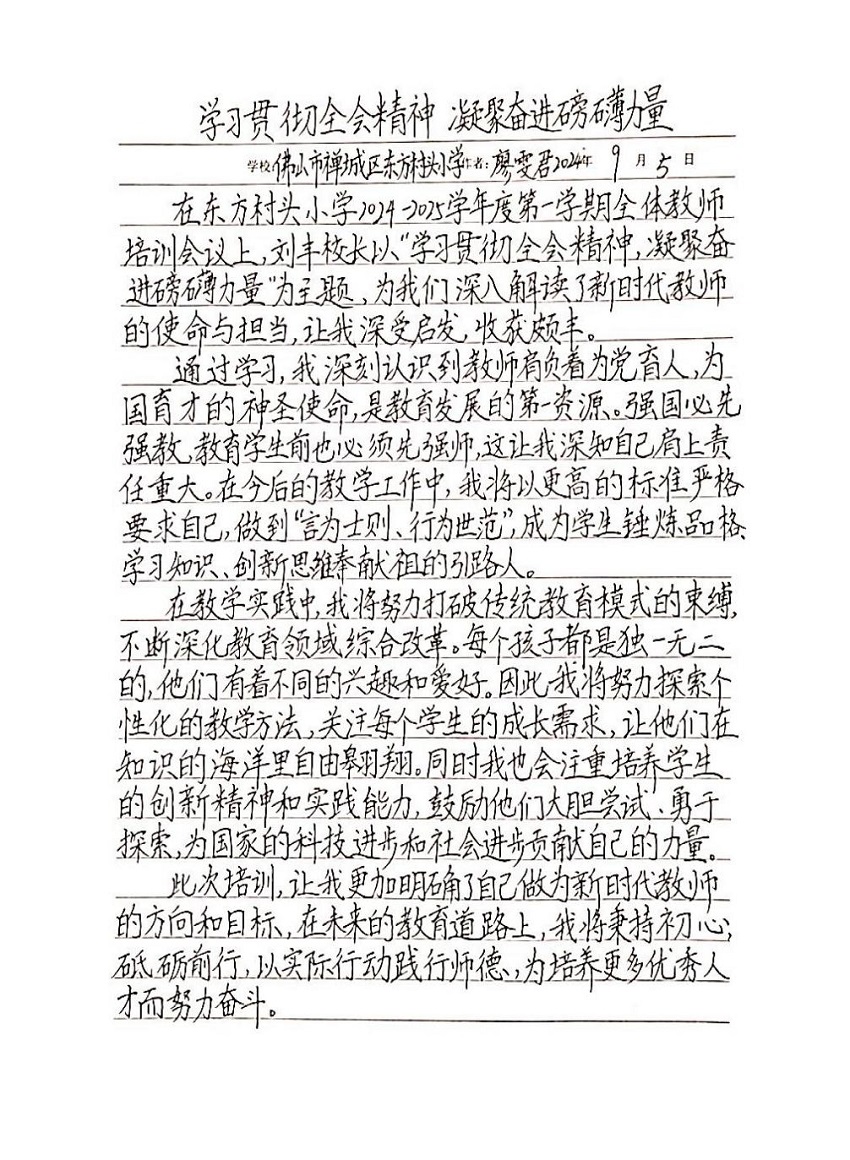 学习贯彻全会精神 凝聚奋进磅礴力量
学校:佛山市禅城区东方村头小学 作者:廖雯君 2024年 9 月 5 日
在东方村头小学2024-2025学年度第一学期全体教师
培训会议上,刘丰校长以“学习贯彻全会精神,凝聚奋
进磅礴力量”为主题,为我们深入解读了新时代教师
的使命与担当,让我深受启发,收获颇丰。
通过学习,我深刻认识到教师肩负着为党育人,为
国育才的神圣使命,是教育发展的第一资源、。强国必先
强教,教育学生前也必须先强师,这让我深知自己肩上责
任重大。在今后的教学工作中,我将以更高的标准严格
要求自己,做到“言为士则、行为世范”,成为学生锤炼品格、
学习知识、创新思维奉献祖的引路人。
在教学实践中,我将努力打破传统教育模式的束缚,
不断深化教育领域综合改革。每个孩子都是独一无二
的,他们有着不同的兴趣和爱好。因此我将努力探索个
性化的教学方法,关注每个学生的成长需求,让他们在
知识的海洋里自由翱翔。同时我也会注重培养学生
的创新精神和实践能力,鼓励他们大胆尝试、勇于
探索,为国家的科技进步和社会进步贡献自己的力量。
此次培训,让我更加明确了自己做为新时代教师
的方向和目标、在未来的教育道路上,我将秉持初心,
砥砺前行,以实际行动践行师德、,为培养更多优秀人
才而努力奋斗。